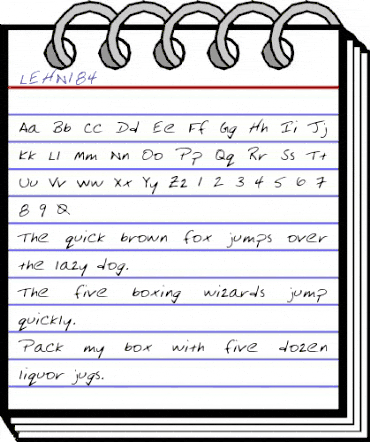 LEHN184
Aa Bb Cc Dd Ee Ff Gg Hh Ii Jj
Kk Ll Mm Nn Oo Pp Qq Rr Ss Tt
Uu Vv Ww Xx Yy Zz 1 2 3 4 5 6 7
8 9 0
The quick brown fox jumps over
the lazy dog.
The five boxing wizards jump
quickly.
Pack my box with five dozen
liquor jugs.